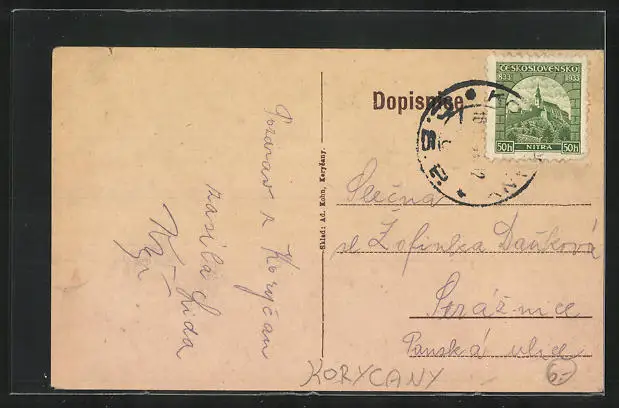 Dopisnice
ČESKOSLOVENSKO
833 1933
NITRA
50h 50h
Pozdrav z Koryčan
zasílá
Lida
Sklad: Ad. Kohn, Koryčany.
Slečna
sl Žofinka Daňková
Strážnice
Panská ulice
KORYCANY